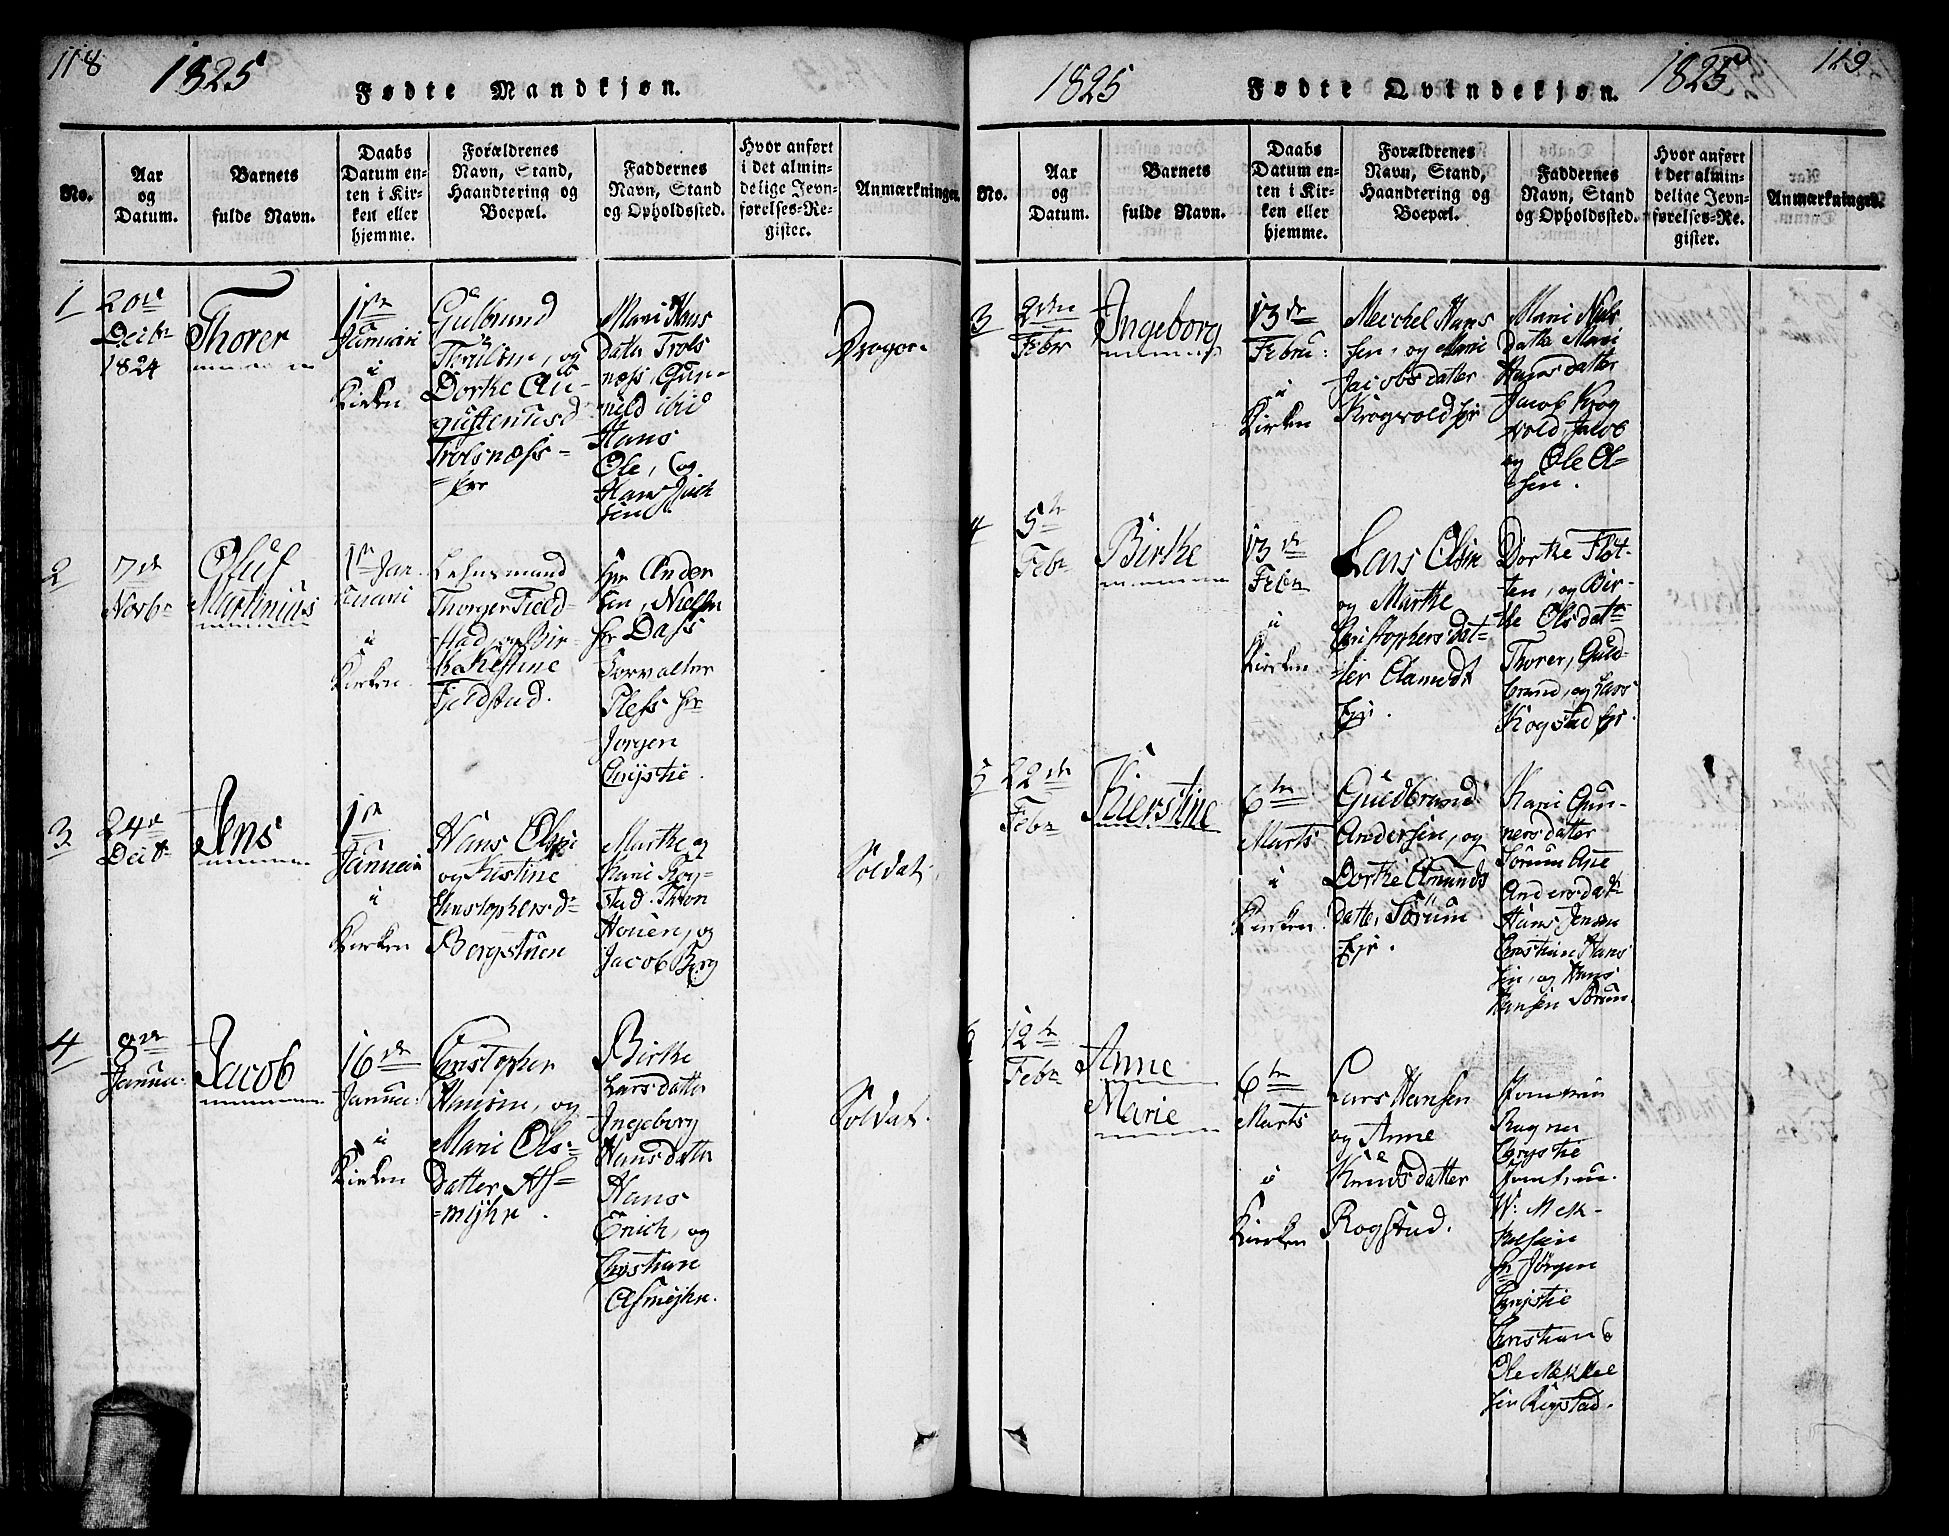 118
1825
Fødte Mandkjøn.
No.
Aar
og
Datum.
Barnets
fulde Navn.
Daabs
Datum en-
ten i Kir-
ken eller
hjemme.
Forældrenes
Navn, Stand,
Haandtering og
Boepæl.
Faddernes
Navn, Stand
og Opholdssted.
Hvor anført
i det almin-
delige Jevn-
førelses-Re-
gister.
Anmærkninger.
1
20de
Decbr
1824
Thorer
1ste
Januari
i
Kirken
Gulbrand
og
Dorthe Au-
gustenusd
Trolsnæss
Mari Hans
datter Trols
næss, Gun-
nild ibid
Hans
Ole, og
Hans
sen
Dragon
2
7de
Novbr
Oluf
Martinius
1ste Jan-
nuari
i
Kirken
Lehnsmand
Thorger Field-
stad, og Bir-
the Kirstine
Fjeldstad.
Hr Ander
sen, Nielsen
hr Dass
Forvalter
Pless Hr
Jørgen
Christie.
3
24de
Decb
Jens
1ste
Januari
i
Kirken
Hans Olsen
og Kirstine
Christophersd
Bergstuen
Marthe og
Kari Rog-
stad. Thron
Houen, og
Jacob Berg
Soldat.
4
8de
Janua:
Jacob
16de
Janua:
i
Kirken
Christopher
Hansen, og
Mari Ols=
datter As=
=mijhr.
Birthe
Larsdatter
Ingeborg
Hansdatter
Hans
Erich, og
Christian
Asmijhr.
Soldat.
119
1825
Fødte Qvindekjøn.
1825
No.
Aar
og
Datum.
Barnets
fulde Navn.
Daabs
Datum en-
ten i Kir-
ken eller
hjemme.
Forældrenes
Navn, Stand,
Haandtering og
Boepæl.
Faddernes
Navn, Stand
og Opholdssted.
Hvor anført
i det almin-
delige Jevn-
førelses-Re-
gister.
Anmærkninger.
3
2den
Febr
Ingeborg
13de
Febru:
i
Kirken
Mechel Hans
sen, og Marie
Jacobsdatter
Krogvold ejr
Mari Niels
datter Mari
Hansdatter
Jacob Krog
vold, Jacob
og Ole Ol=
=sen.
4
5te
Febr
Birthe
13de
Febr
i
Kirken
Lars Olsen
og Marthe
Christophersdat-
ter Aamodt
Ejr.
Dorthe Flot-
ten, og Bir-
the Olsdatr
Thorer, Guld-
brand, og Lars
Rogstad ejr.
5
22de
Febr
Kierstine
6te
Marts
i
Kirken
Guldbrand
Andersen, og
Dorthe Amunds
datter Sørum
Ejr.
Kari Gun-
nersdatter
Sørum Ane
Andersdatr
Hans Jensen
Christian Hans
sen, og Hans
Hansen Sørum.
6
12te
Febr
Anne
Marie
6te
Marts
i
Kirken
Lars Hansen
og Anne
Knudsdatter
Rogstad.
Jomfrui
Ragna
Christie
Jomfrue.
hr Jørgen
Christie
Christian &
Ole Mekkel
sen Rogstad.